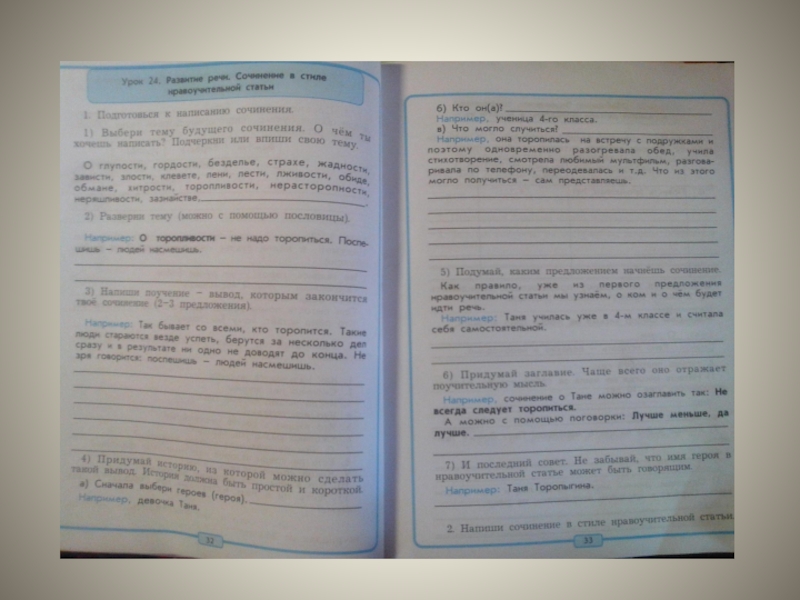 Урок 24. Развитие речи. Сочинение в стиле
нравоучительной статьи
1. Подготовься к написанию сочинения.
1) Выбери тему будущего сочинения. О чём ты
хочешь написать? Подчеркни или впиши свою тему.
О глупости, гордости, безделье, страхе, жадности,
зависти, злости, клевете, лени, лести, лживости, обиде,
обмане, хитрости, торопливости, нерасторопности,
неряшливости, зазнайстве
2) Разверни тему (можно с помощью пословицы).
Например: О торопливости – не надо торопиться. Поспе-
шишь – людей насмешишь.
3) Напиши поучение – вывод, которым закончится
твоё сочинение (2–3 предложения).
Например: Так бывает со всеми, кто торопится. Такие
люди стараются везде успеть, берутся за несколько дел
сразу и в результате ни одно не доводят до конца. Не
зря говорится: поспешишь – людей насмешишь.
4) Придумай историю, из которой можно сделать
такой вывод. История должна быть простой и короткой.
а) Сначала выбери героев (героя).
Например, девочка Таня.
32
б) Кто он(а)?
Например, ученица 4-го класса.
в) Что могло случиться?
Например, она торопилась на встречу с подружками и
поэтому одновременно разогревала обед, учила
стихотворение, смотрела любимый мультфильм, разгова-
ривала по телефону, переодевалась и т.д. Что из этого
могло получиться – сам представляешь.
5) Подумай, каким предложением начнёшь сочинение.
Как правило, уже из первого предложения
нравоучительной статьи мы узнаём, о ком и о чём будет
идти речь.
Например: Таня училась уже в 4-м классе и считала
себя самостоятельной.
6) Придумай заглавие. Чаще всего оно отражает
поучительную мысль.
Например, сочинение о Тане можно озаглавить так: Не
всегда следует торопиться.
А можно с помощью поговорки: Лучше меньше, да
лучше.
7) И последний совет. Не забывай, что имя героя в
нравоучительной статье может быть говорящим.
Например: Таня Торопыгина.
2. Напиши сочинение в стиле нравоучительной статьи.
33